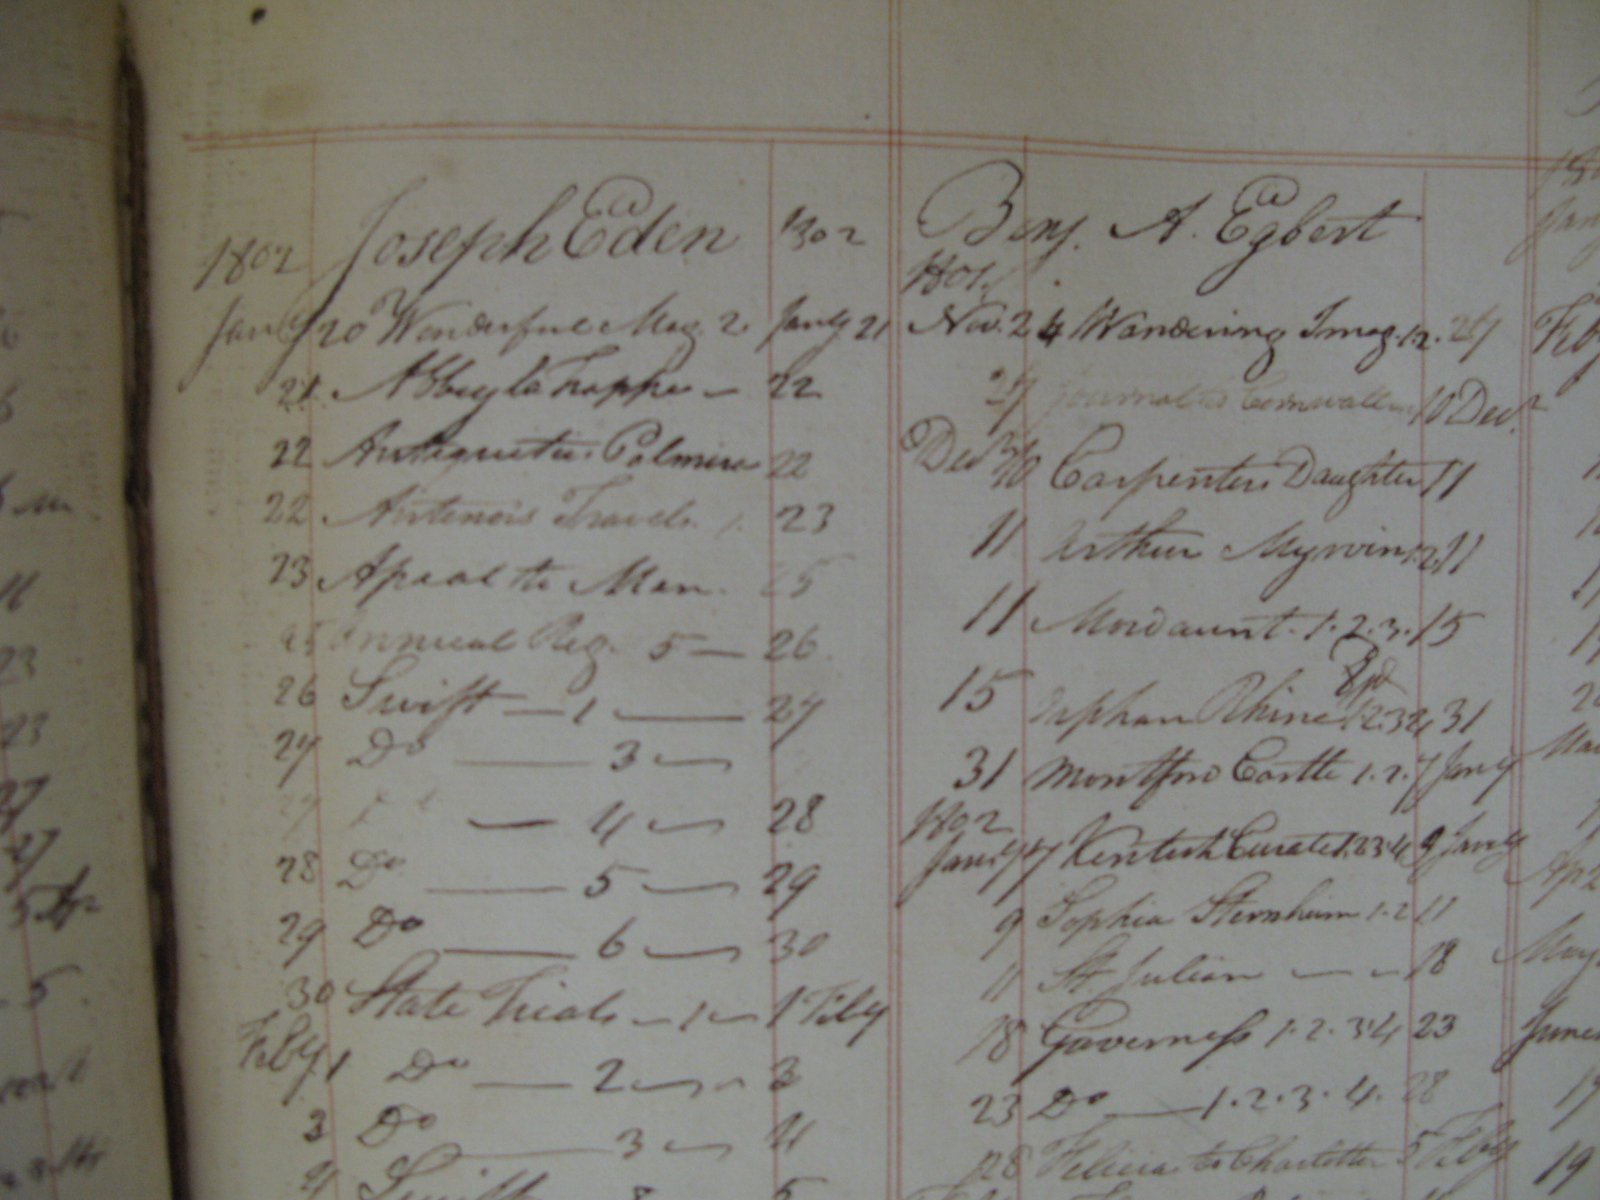 1802 Joseph Eden 1802
Jany 20 Wonderful Mag. 2 Jany 21
21 Abbey la Trappe — 22
22 Antiquities Palmira 22
22 Antenois Travels 1. 23
23 Apeal to Man. 25
25 Annual Reg. 5 — 26
26 Swift — 1 — 27
27 Do — 3 —
27 — 4 — 28
28 Do — 5 — 29
29 Do — 6 — 30
30 State Trials — 1 — 1 Feby
Feby 1 Do — 2 — 3
3 Do — 3 — 4
4 Swift 8 5
Benj. A. Egbert
1801
Nov. 24 Wandering Imag. 1.2. 27
27 Journal to Cornwallis 10 Decr.
Decr 10 Carpenters Daughter 11
11 Arthur Myrvin 1.2 11
11 Mordaunt. 1.2.3. 15
15 Orphan Rhine 1.2.3.4 31
31 Montford Castle 1.2. 7 Jany
1802
Jany 7 Kentish Curate 1.2.3.4 9 Jany
9 Sophia Sternheim 1.2 11
11 St Julian — — 18
18 Governess 1.2.3.4 23
23 Do — 1.2.3.4. 28
28 Felicia to Charlotte 5 Feby